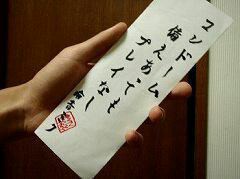 コンドーム
備えあっても
プレイなし